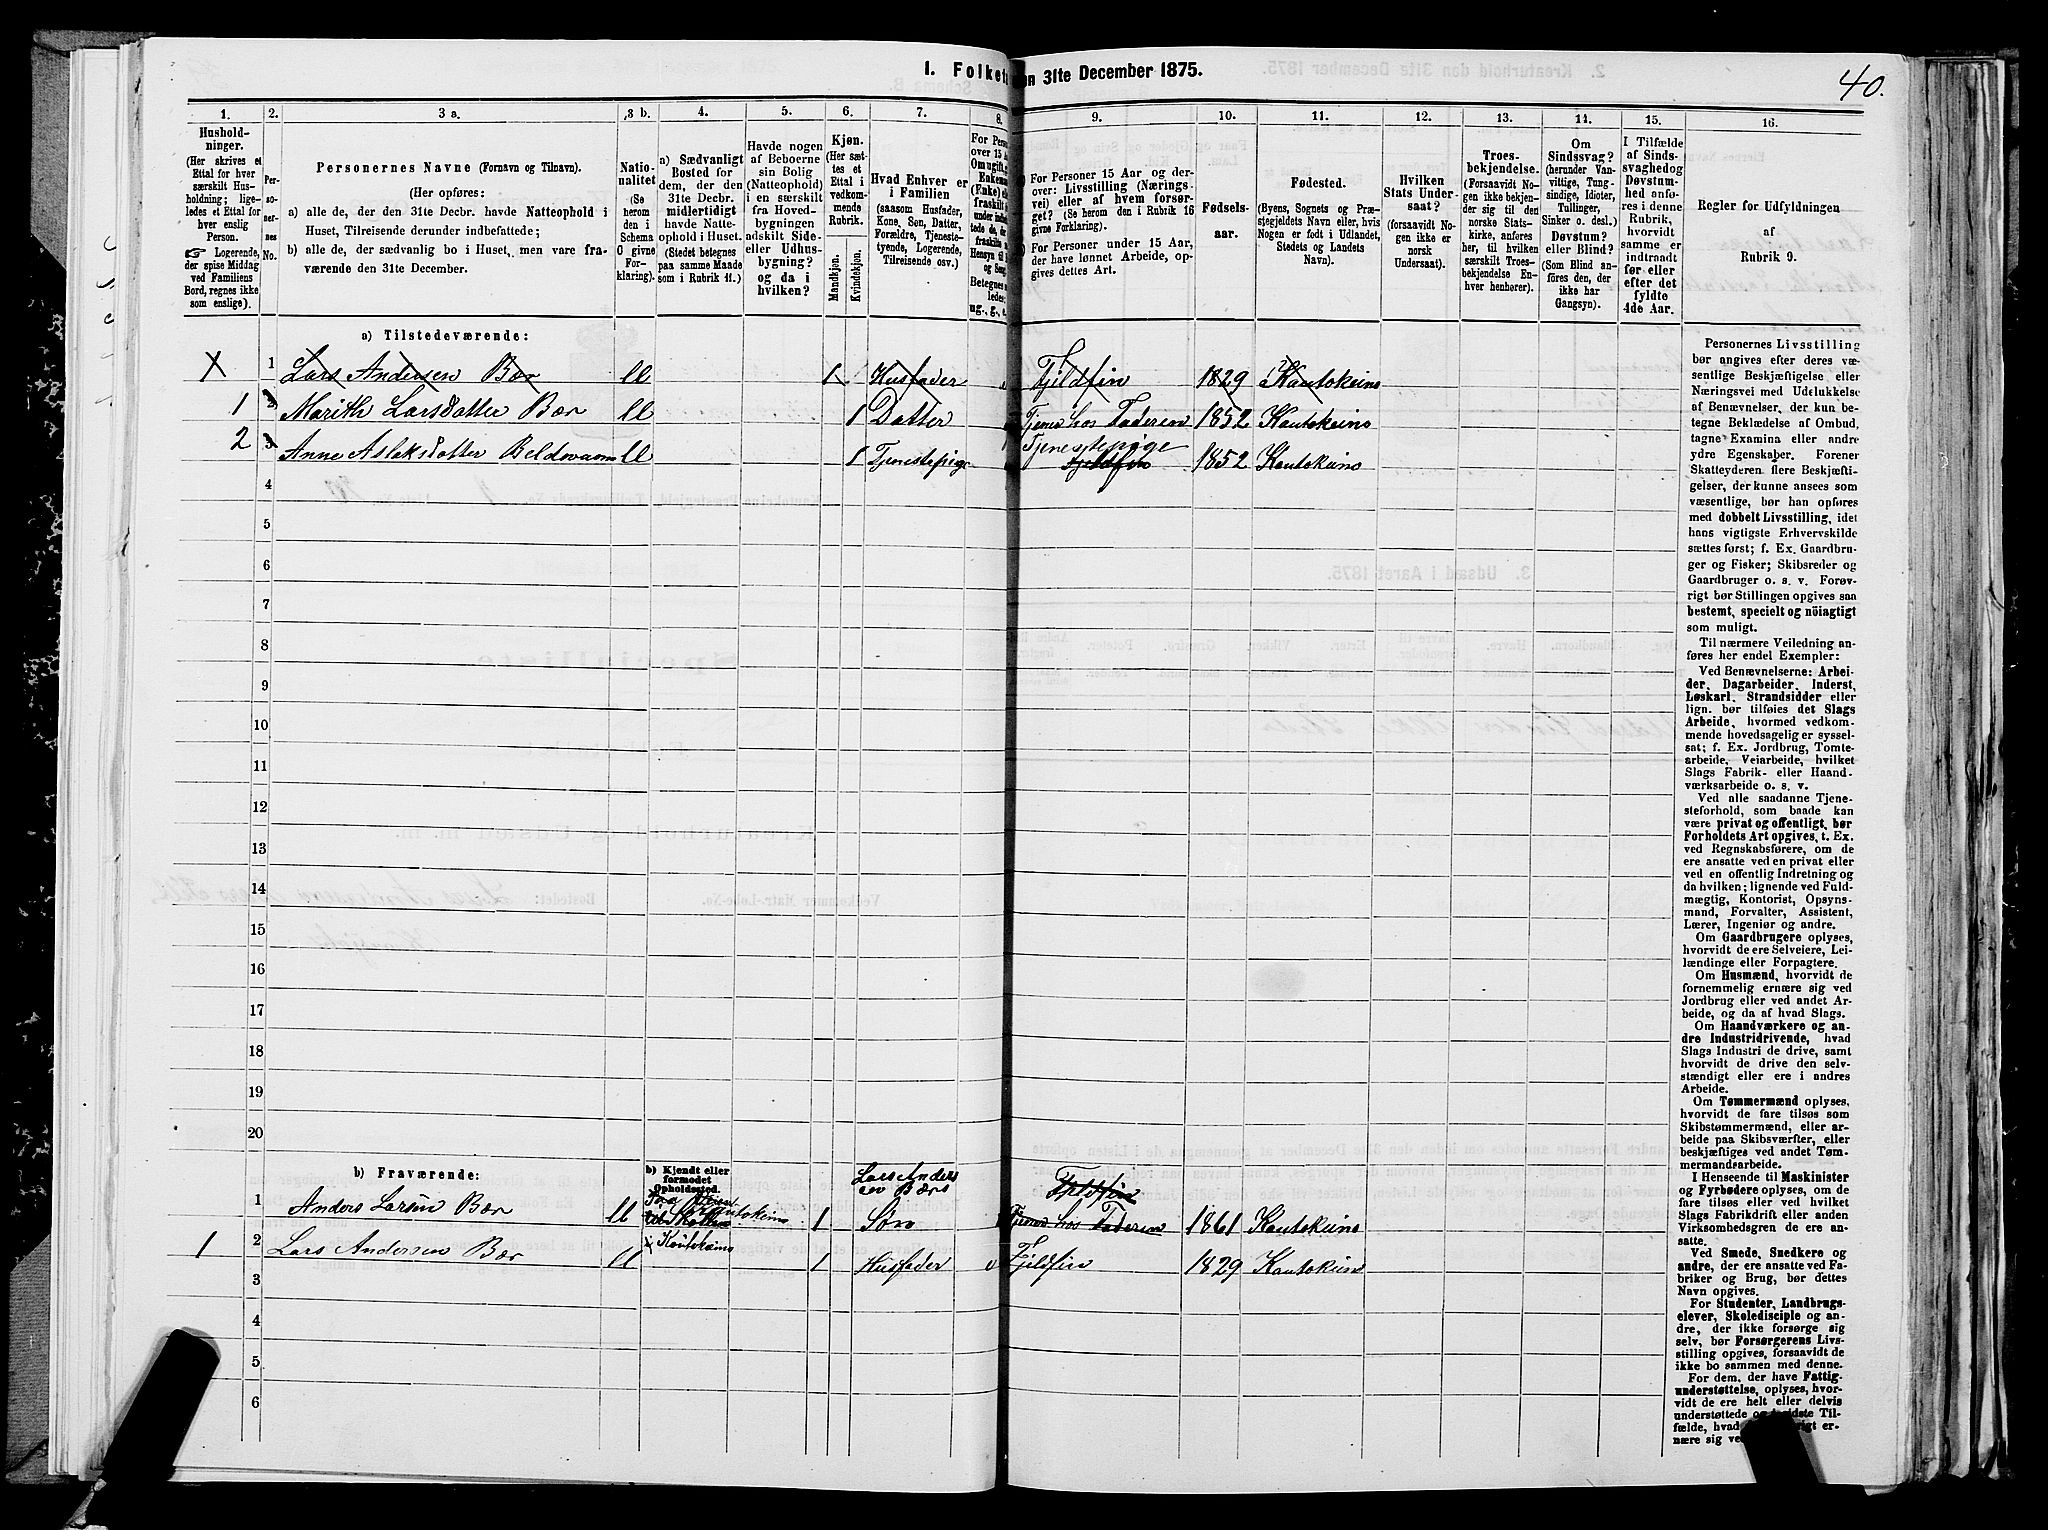 40.
1. Folket
en 31te December 1875.
1.
2.
3 a.
3 b.
4.
5.
6.
7.
8.
9.
10.
11.
12.
13.
14.
15.
16.
Hushold-
ninger.
(Her skrives et
Ettal for hver
særskilt Hus-
holdning; lige-
ledes et Ettal for
hver enslig
Person.
☞ Logerende,
der spise Middag
ved Familiens
Bord, regnes ikke
som enslige).
Per-
so-
ner-
nes
No.
Personernes Navne (Fornavn og Tilnavn).
(Her opføres:
a) alle de, der den 31te Decbr. havde Natteophold i
Huset, Tilreisende derunder indbefattede;
b) alle de, der sædvanlig bo i Huset, men vare fra-
værende den 31te December.
Natio-
nalitet
(Se
herom
den i
Schema
G givne
For-
klaring).
a) Sædvanligt
Bosted for
dem, der den
31te Decbr.
midlertidigt
havde Natte-
ophold i Huset.
(Stedet betegnes
paa samme Maade
som i Rubrik 11.)
Havde nogen
af Beboerne
sin Bolig
(Natteophold)
i en særskilt
fra Hoved-
bygningen
adskilt Side-
eller Udhus-
bygning?
og da i
hvilken?
Kjøn.
(Her sæt-
tes et
Ettal i
vedkom-
mende
Rubrik.
Mandkjøn.
Kvindekjøn.
Hvad Enhver er
i Familien
(saasom Husfader,
Kone, Søn, Datter,
Forældre, Tjeneste-
tyende, Logerende,
Tilreisende osv.)
For Personer 15 Aar og der-
over: Livsstilling (Nærings-
vei) eller af hvem forsør-
get? (Se herom den i Rubrik 16
givne Forklaring).
For Personer under 15 Aar,
der have lønnet Arbeide, op-
gives dettes Art.
Fødsels-
aar.
Fødested.
(Byens, Sognets og Præ-
stegjeldets Navn eller, hvis
Nogen er født i Udlandet,
Stedets og Landets
Navn).
Hvilken
Stats Under-
saat?
(forsaavidt No-
gen ikke er
norsk
Undersaat).
Troes-
bekjendelse.
(Forsaavidt No-
gen ikke bekjen-
der sig til den
norske Stats-
kirke, anføres
her, til hvilken
særskilt Troes-
bekjendelse En-
hver henhører).
Om
Sindssvag?
(herunder Van-
vittige, Tung-
sindige, Idioter,
Tullinger,
Sinker o. desl.).
Døvstum?
eller Blind?
(Som Blind an-
føres den, der
ikke har
Gangsyn).
I Tilfælde
af Sinds-
svaghed og
Døvstum-
hed anfø-
res i denne
Rubrik,
hvorvidt
samme er
indtraadt
før eller
efter det
fyldte
4de Aar.
Regler for Udfyldningen
af
Rubrik 9.
a) Tilstedeværende:
X 1 Lars Andersen Bær ll 1 Husfader Fjeldfin 1829 Kautokeino
1 2 Marith Larsdatter Bær ll 1 Datter Tjener hos Faderen 1852 Kautokeino
2 3 Anne Aslaksdatter Beldovaara ll 1 Tjenestepige Tjenestepige Fjeldfin 1852 Kautokeino
4
5
6
7
8
9
10
11
12
13
14
15
16
17
18
19
20
b) Fraværende:
b) Kjendt eller
formodet
Opholdssted.
1 Anders Larsen Bær ll Kautokeino 1 Lars Andersen Bærs Søn Fjeldfin Tjener hos Faderen 1861 Kautokeino
1 2 Lars Andersen Bær ll i Kautokeino 1 Husfader Fjeldfin 1829 Kautokeino
3
4
5
6
Personernes Livsstilling
bør angives efter deres væ-
sentlige Beskjæftigelse eller
Næringsvei med Udelukkelse
af Benævnelser, der kun be-
tegne Beklædelse af Ombud,
tagne Examina eller andre
ydre Egenskaber. Forener
Skatteyderen flere Beskjæfti-
gelser, der kunne ansees som
væsentlige, bør han opføres
med dobbelt Livsstilling, idet
hans vigtigste Erhvervskilde
sættes først; f. Ex. Gaardbru-
ger og Fisker; Skibsreder og
Gaardbruger o. s. v. Forøv-
rigt bør Stillingen opgives saa
bestemt, specielt og nöiagtigt
som muligt.
Til nærmere Veiledning an-
føres her endel Exempler:
Ved Benævnelserne: Arbei-
der, Dagarbeider, Inderst,
Løskarl, Strandsidder eller
lign. bør tilføies det Slags
Arbeide, hvormed vedkom-
mende hovedsagelig er syssel-
sat; f. Ex. Jordbrug, Tomte-
arbeide, Veiarbeide, hvilket
Slags Fabrik- eller Haand-
værksarbeide o. s. v.
Ved alle saadanne Tjene-
steforhold, som baade kan
være privat og offentligt, bør
Forholdets Art opgives, t. Ex.
ved Regnskabsførere, om de
ere ansatte ved en privat eller
ved en offentlig Indretning og
da hvilken; lignende ved Fuld-
mægtig, Kontorist, Opsyns-
mand, Forvalter, Assistent,
Lærer, Ingeniør og andre.
Om Gaardbrugere oplyses,
hvorvidt de ere Selveiere, Lei-
lændinge eller Forpagtere.
Om Husmænd, hvorvidt de
fornemmelig ernære sig ved
Jordbrug eller ved andet Ar-
beide, og da af hvad Slags.
Om Haandværkere og an-
dre Industridrivende, hvad
Slags Industri de drive, samt
hvorvidt de drive den selv-
stændigt eller ere i andres
Arbeide.
Om Tømmermænd oplyses,
hvorvidt de fare tilsøs som
Skibstømmermænd, eller ar-
beide paa Skibsværfter, eller
beskjæftiges ved andet Tøm-
mermandsarbeide.
I Henseende til Maskinister
og Fyrbødere oplyses, om de
fare tilsøs eller ved hvilket
Slags Fabrikdrift eller anden
Virksomhedsgren de ere an-
satte.
Ved Smede, Snedkere og
andre, der ere ansatte ved Fa-
briker og Brug, bør dettes
Navn opgives.
For Studenter, Landbrugs-
elever, Skoledisciple og an-
dre, der ikke forsørge sig
selv, bør Forsørgerens Livs-
stilling opgives, forsaavidt de
ikke bo sammen med denne.
For dem, der have Fattig-
understøttelse, oplyses, hvor-
vidt de ere helt eller delvis
understøttede og i sidste Til-
fælde, hvad de forøvrigt er-
nære sig ved.